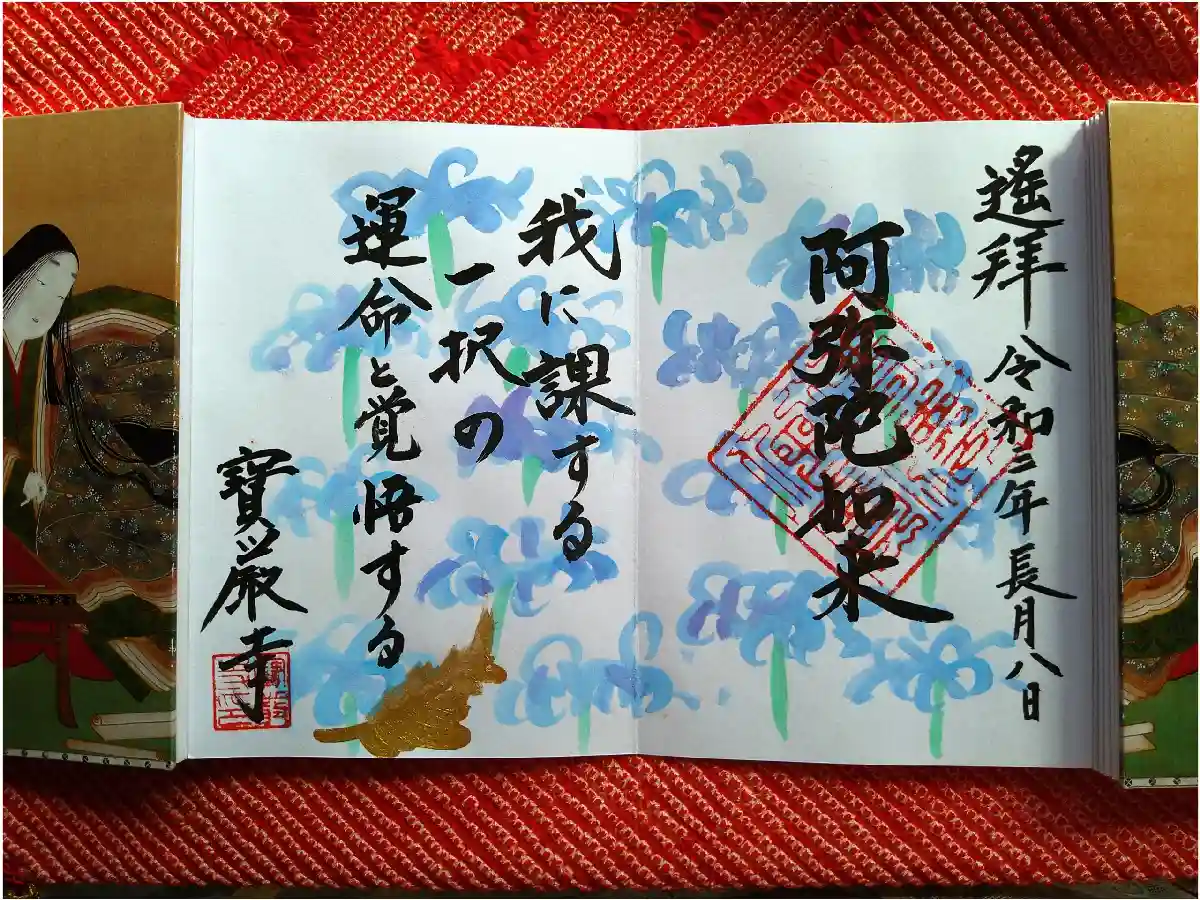 遙拝 令和三年長月八日
阿弥陀如来
我に課する
一択の
運命と覚悟する
寶厳寺